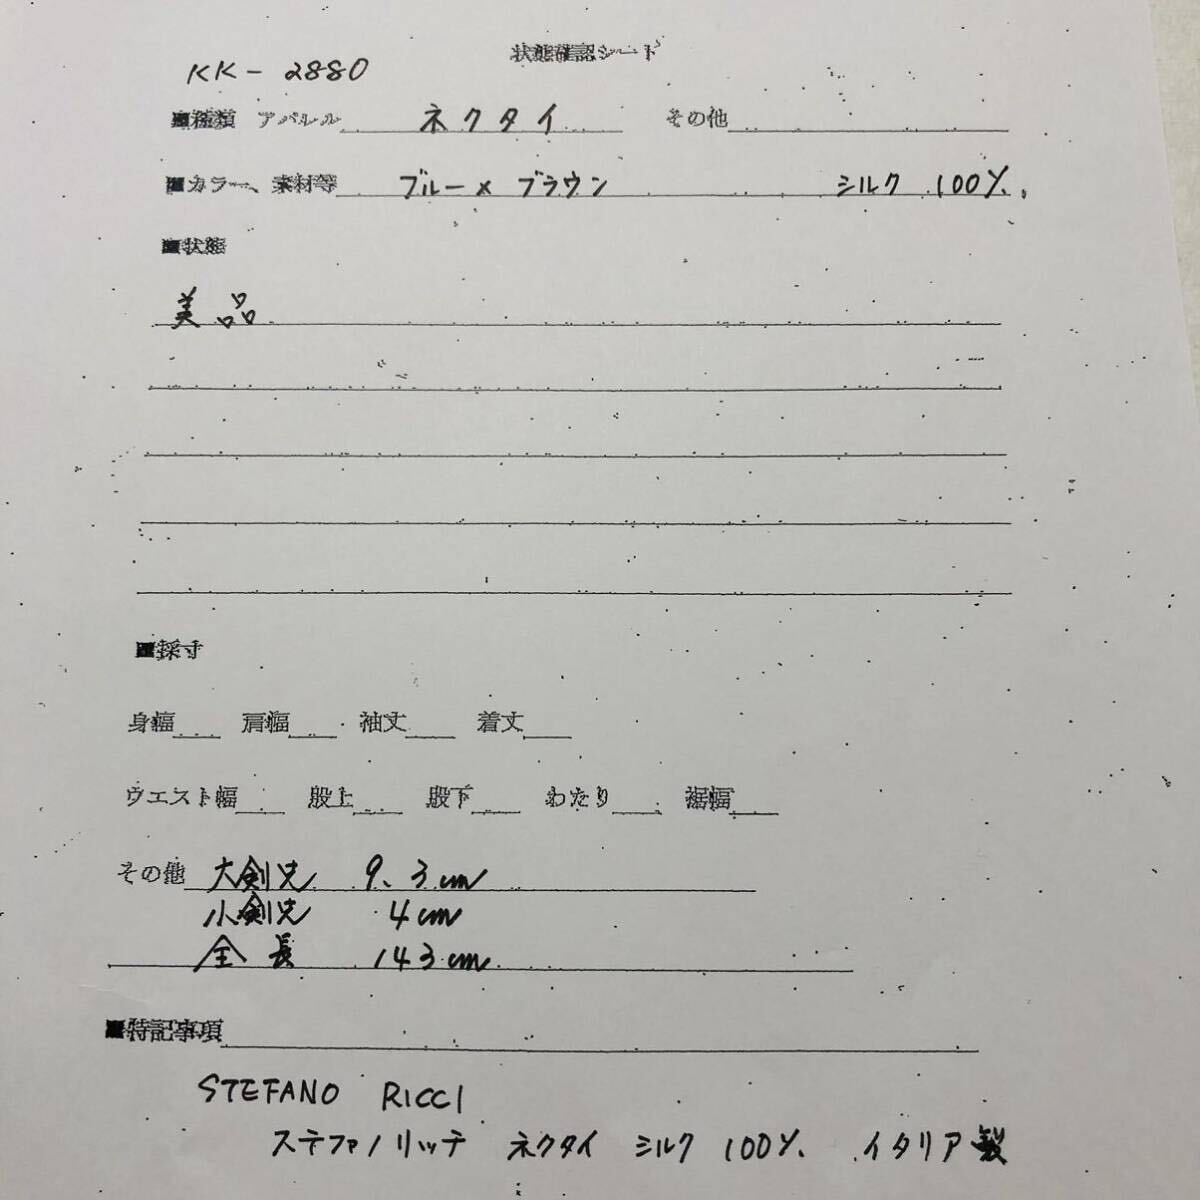 状態確認シート
KK-2880
■種類 アパレル ネクタイ その他
■カラー、素材等 ブルー×ブラウン シルク 100%.
■状態
美品
■採寸
身幅 肩幅 袖丈 着丈
ウエスト幅 股上 股下 わたり 裾幅
その他 大剣先 9.3cm
小剣先 4cm
全長 143cm
■特記事項
STEFANO RICCI
ステファノリッチ ネクタイ シルク 100% イタリア製